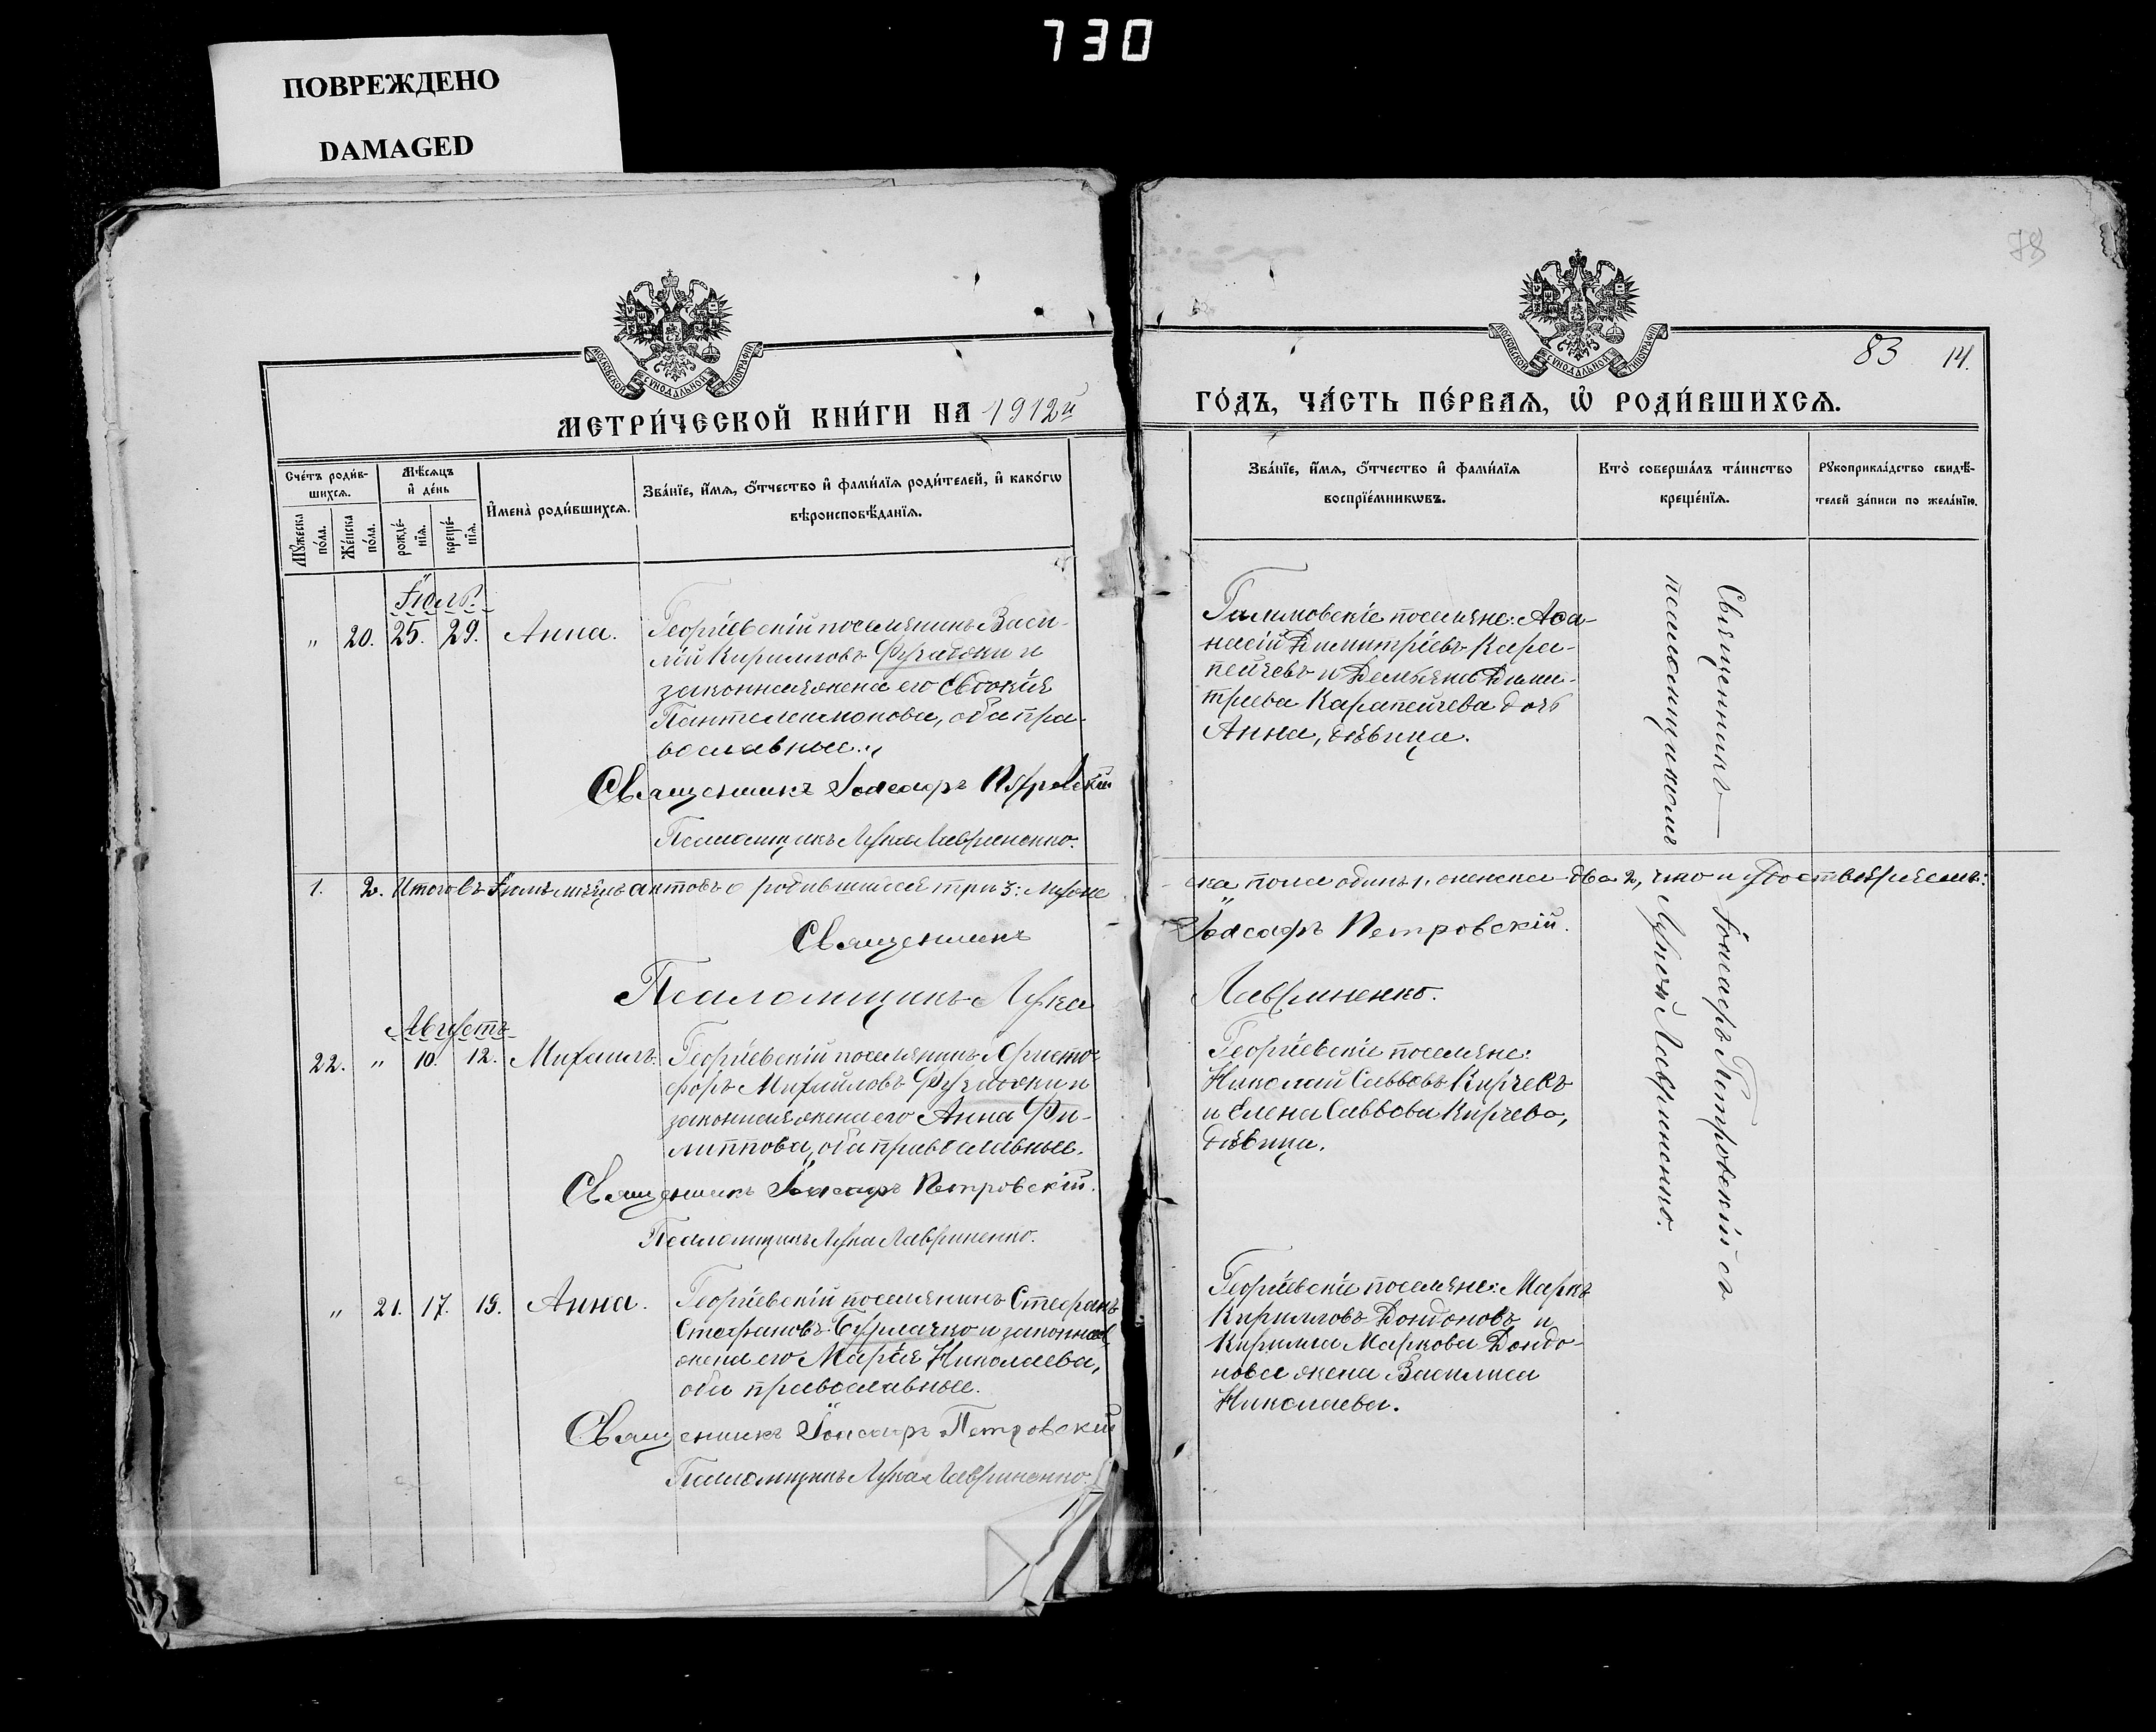 730
ПОВРЕЖДЕНО
DAMAGED
78
МОСКОВСКОЙ СѴНОДАЛЬНОЙ ТИПОГРАФІИ
МОСКОВСКОЙ СѴНОДАЛЬНОЙ ТИПОГРАФІИ
83 14.
МЕТРИ́ЧЕСКОЙ КНИ́ГИ НА 1912й
ГО́ДЪ, ЧА́СТЬ ПЕ́РВАѦ, Ѡ҆ РОДИ́ВШИХСѦ.
Сче́тъ роди́в-
шихсѧ.
Мꙋ́жеска
по́ла.
Же́нска
по́ла.
Мѣ́сѧцъ
и҆ де́нь
рожде́-
нїѧ.
креще́-
нїѧ.
И҆мена̀ роди́вшихсѧ.
Зва́нїе, и҆́мѧ, ѻ҆́тчество и҆ фами́лїѧ роди́телей, и҆ како́гѡ
вѣроисповѣ́данїѧ.
Зва́нїе, и҆́мѧ, ѻ҆́тчество и҆ фами́лїѧ
воспрїе́мникѡвъ.
Кто̀ соверша́лъ та́инство
креще́нїѧ.
Рꙋкоприкла́дство свидѣ́-
телей за́писи по жела́нїю.
Іюль.
" 20. 25. 29. Анна.
Георгіевскій поселянинъ Васи-
лій Кирилловъ Фучаджи и
законная жена его Евдокія
Пантелеимонова, оба пра-
вославные.
Священникъ Іоасафъ Петровскій
Псаломщикъ Лука Лавриненко.
Аѳа-
насій Димитріевъ Кара-
пейчевъ и Демьяна Дими-
тріева Карапейчева дочь
Анна, дѣвица.
1. 2. Итого въ Іюлѣ мѣсяцѣ актовъ о родившихся три 3: муже
ска пола одинъ 1, женска два 2, что и удостовѣряемъ:
Священникъ Іоасафъ Петровскій.
Псаломщикъ Лука Лавриненко.
Августъ
22. " 10. 12. Михаилъ.
Георгіевскій поселянинъ Христо-
форъ Михайловъ Фучаджи и
законная жена его Анна Фи-
липпова, оба православные.
Священникъ Іоасафъ Петровскій.
Псаломщикъ Лука Лавриненко.
Георгіевскіе поселяне:
Николай Саввовъ Кирчевъ
и Елена Саввова Кирчева,
дѣвица.
" 21. 17. 19. Анна.
Георгіевскій поселянинъ Стефанъ
Стефановъ Бурлачко и законная
жена его Марія Николаева,
оба православные.
Священникъ Іоасафъ Петровскій
Псаломщикъ Лука Лавриненко.
Георгіевскіе поселяне: Маркъ
Кирилловъ Дондоновъ и
Кирилла Маркова Дондо-
нова жена Василиса
Николаева.
Священникъ Іоасафъ Петровскій съ
псаломщикомъ Лукой Лавриненко.